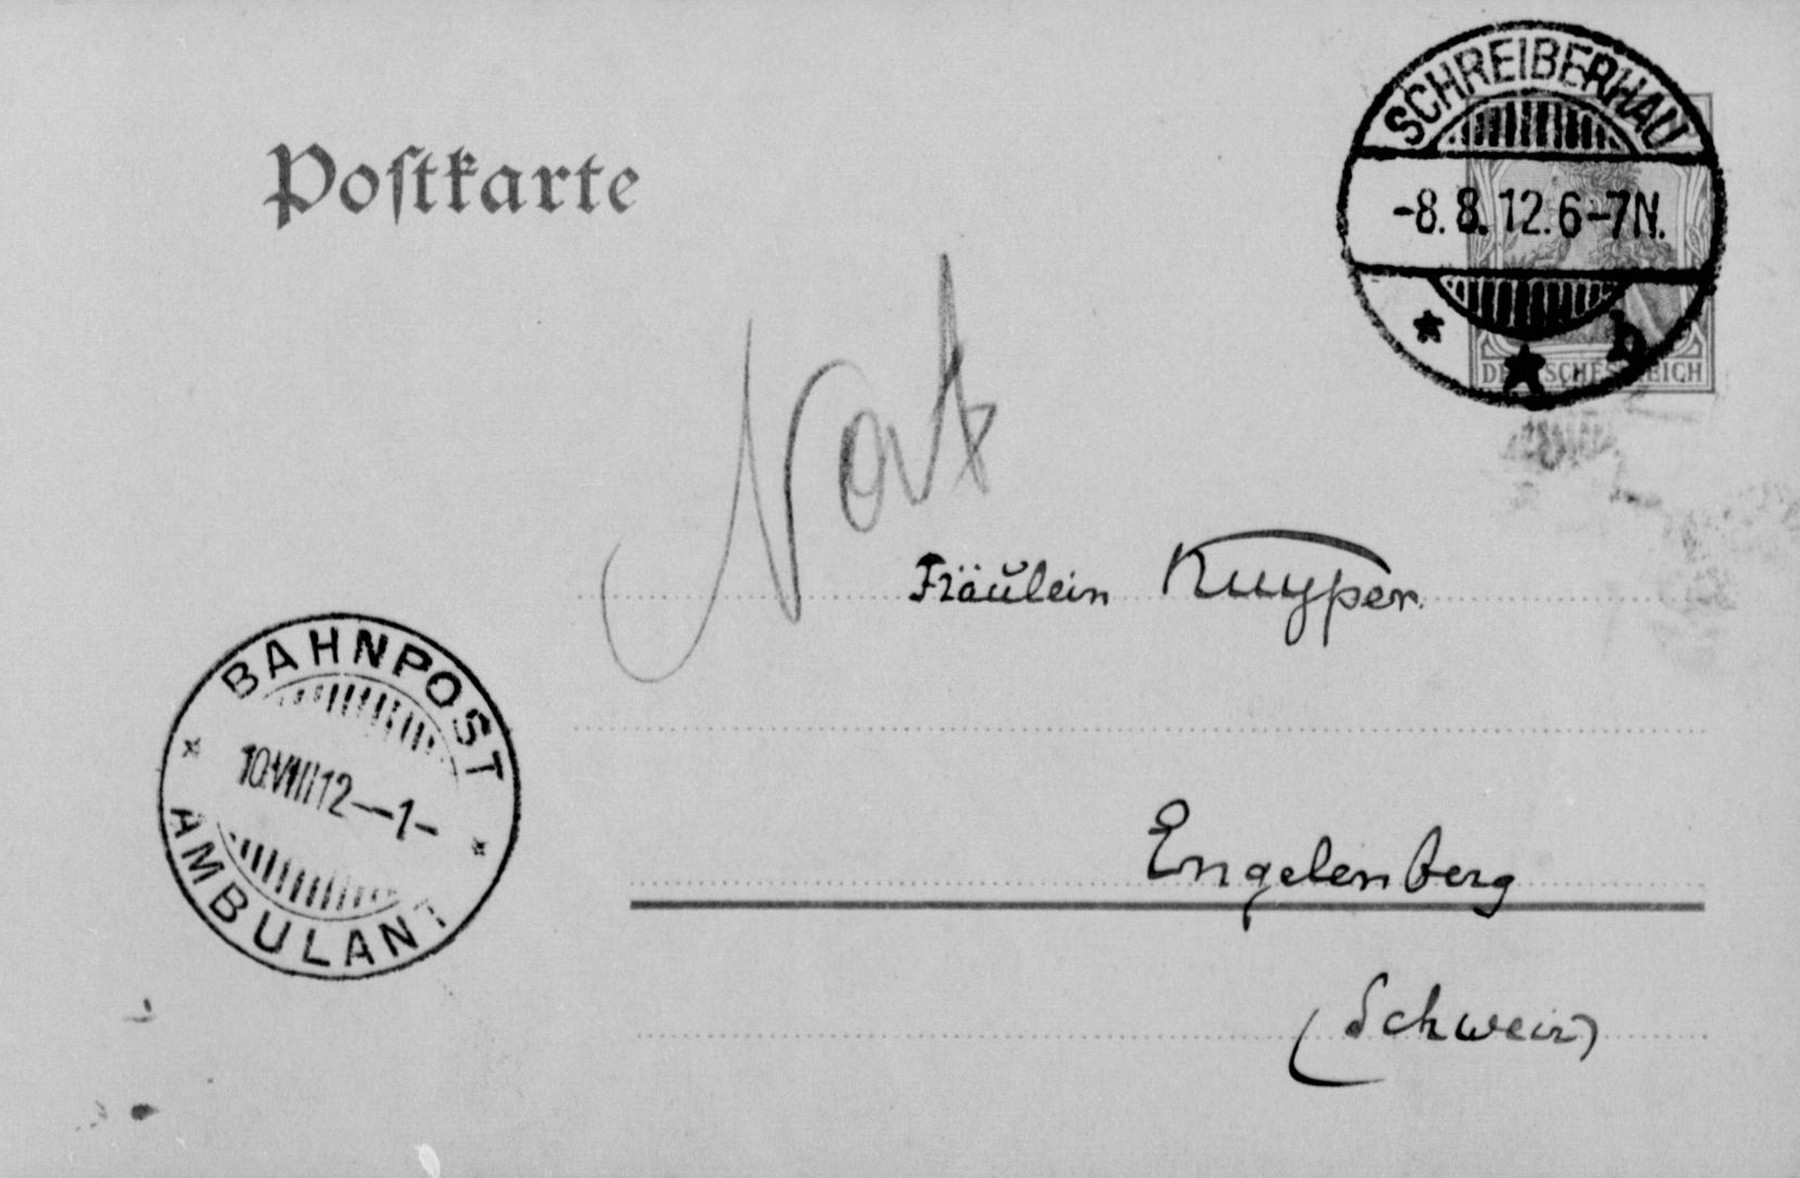 SCHREIBERHAU
-8.8.12.6-7N.
* * b
DEUTSCHES REICH
Poſtkarte
Fräulein Kuyper.
BAHNPOST
10.VIII12—1-
AMBULANT
Engelenberg
(Schweiz)